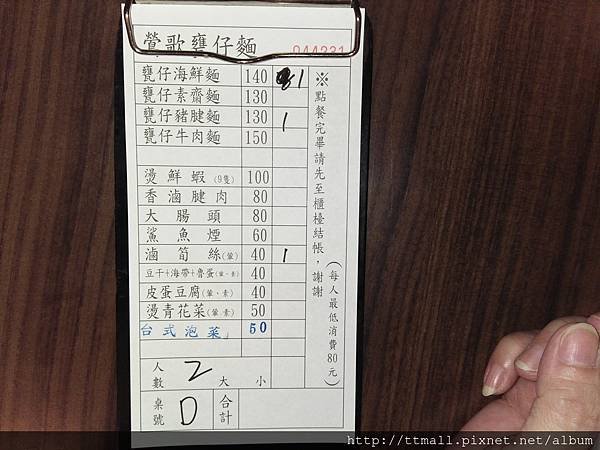 鶯歌甕仔麵
044231
甕仔海鮮麵 140 1
甕仔素齋麵 130
甕仔豬腱麵 130 1
甕仔牛肉麵 150
燙鮮蝦(9隻) 100
香滷腱肉 80
大腸頭 80
鯊魚煙 60
滷筍絲(葷) 40 1
豆干+海帶+魯蛋(葷、素) 40
皮蛋豆腐(葷、素) 40
燙青花菜(葷、素) 50
台式泡菜」 50
人數 2 大 小
桌號 D 合計
※點餐完畢請先至櫃檯結帳，謝謝
(每人最低消費80元)
http://ttmall.pixnet.net/album